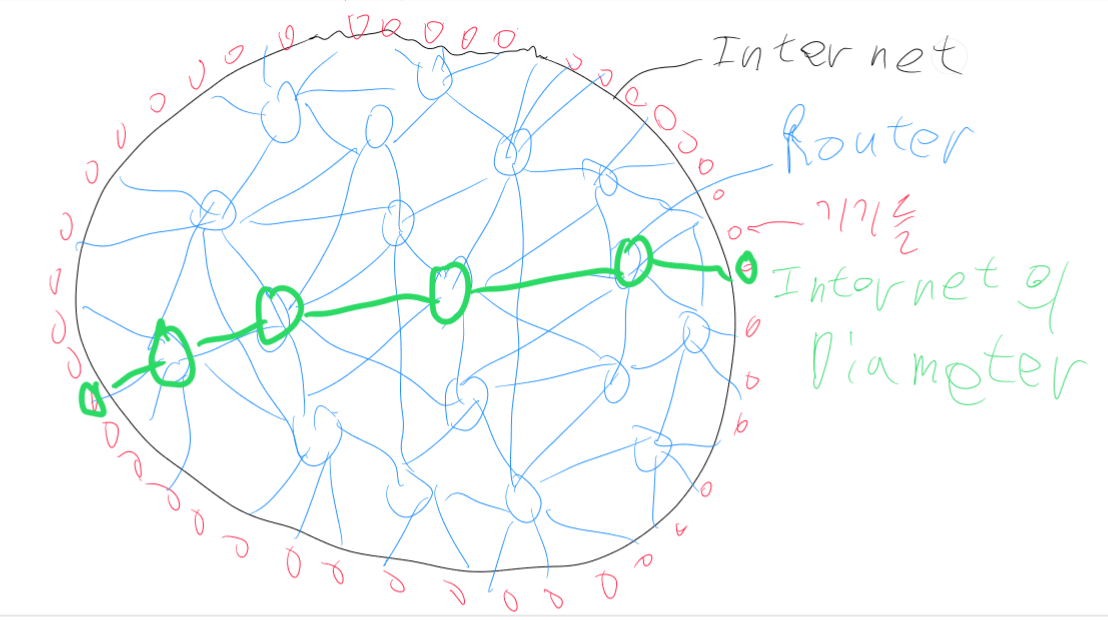 Internet
Router
기기들
Internet의
Diameter